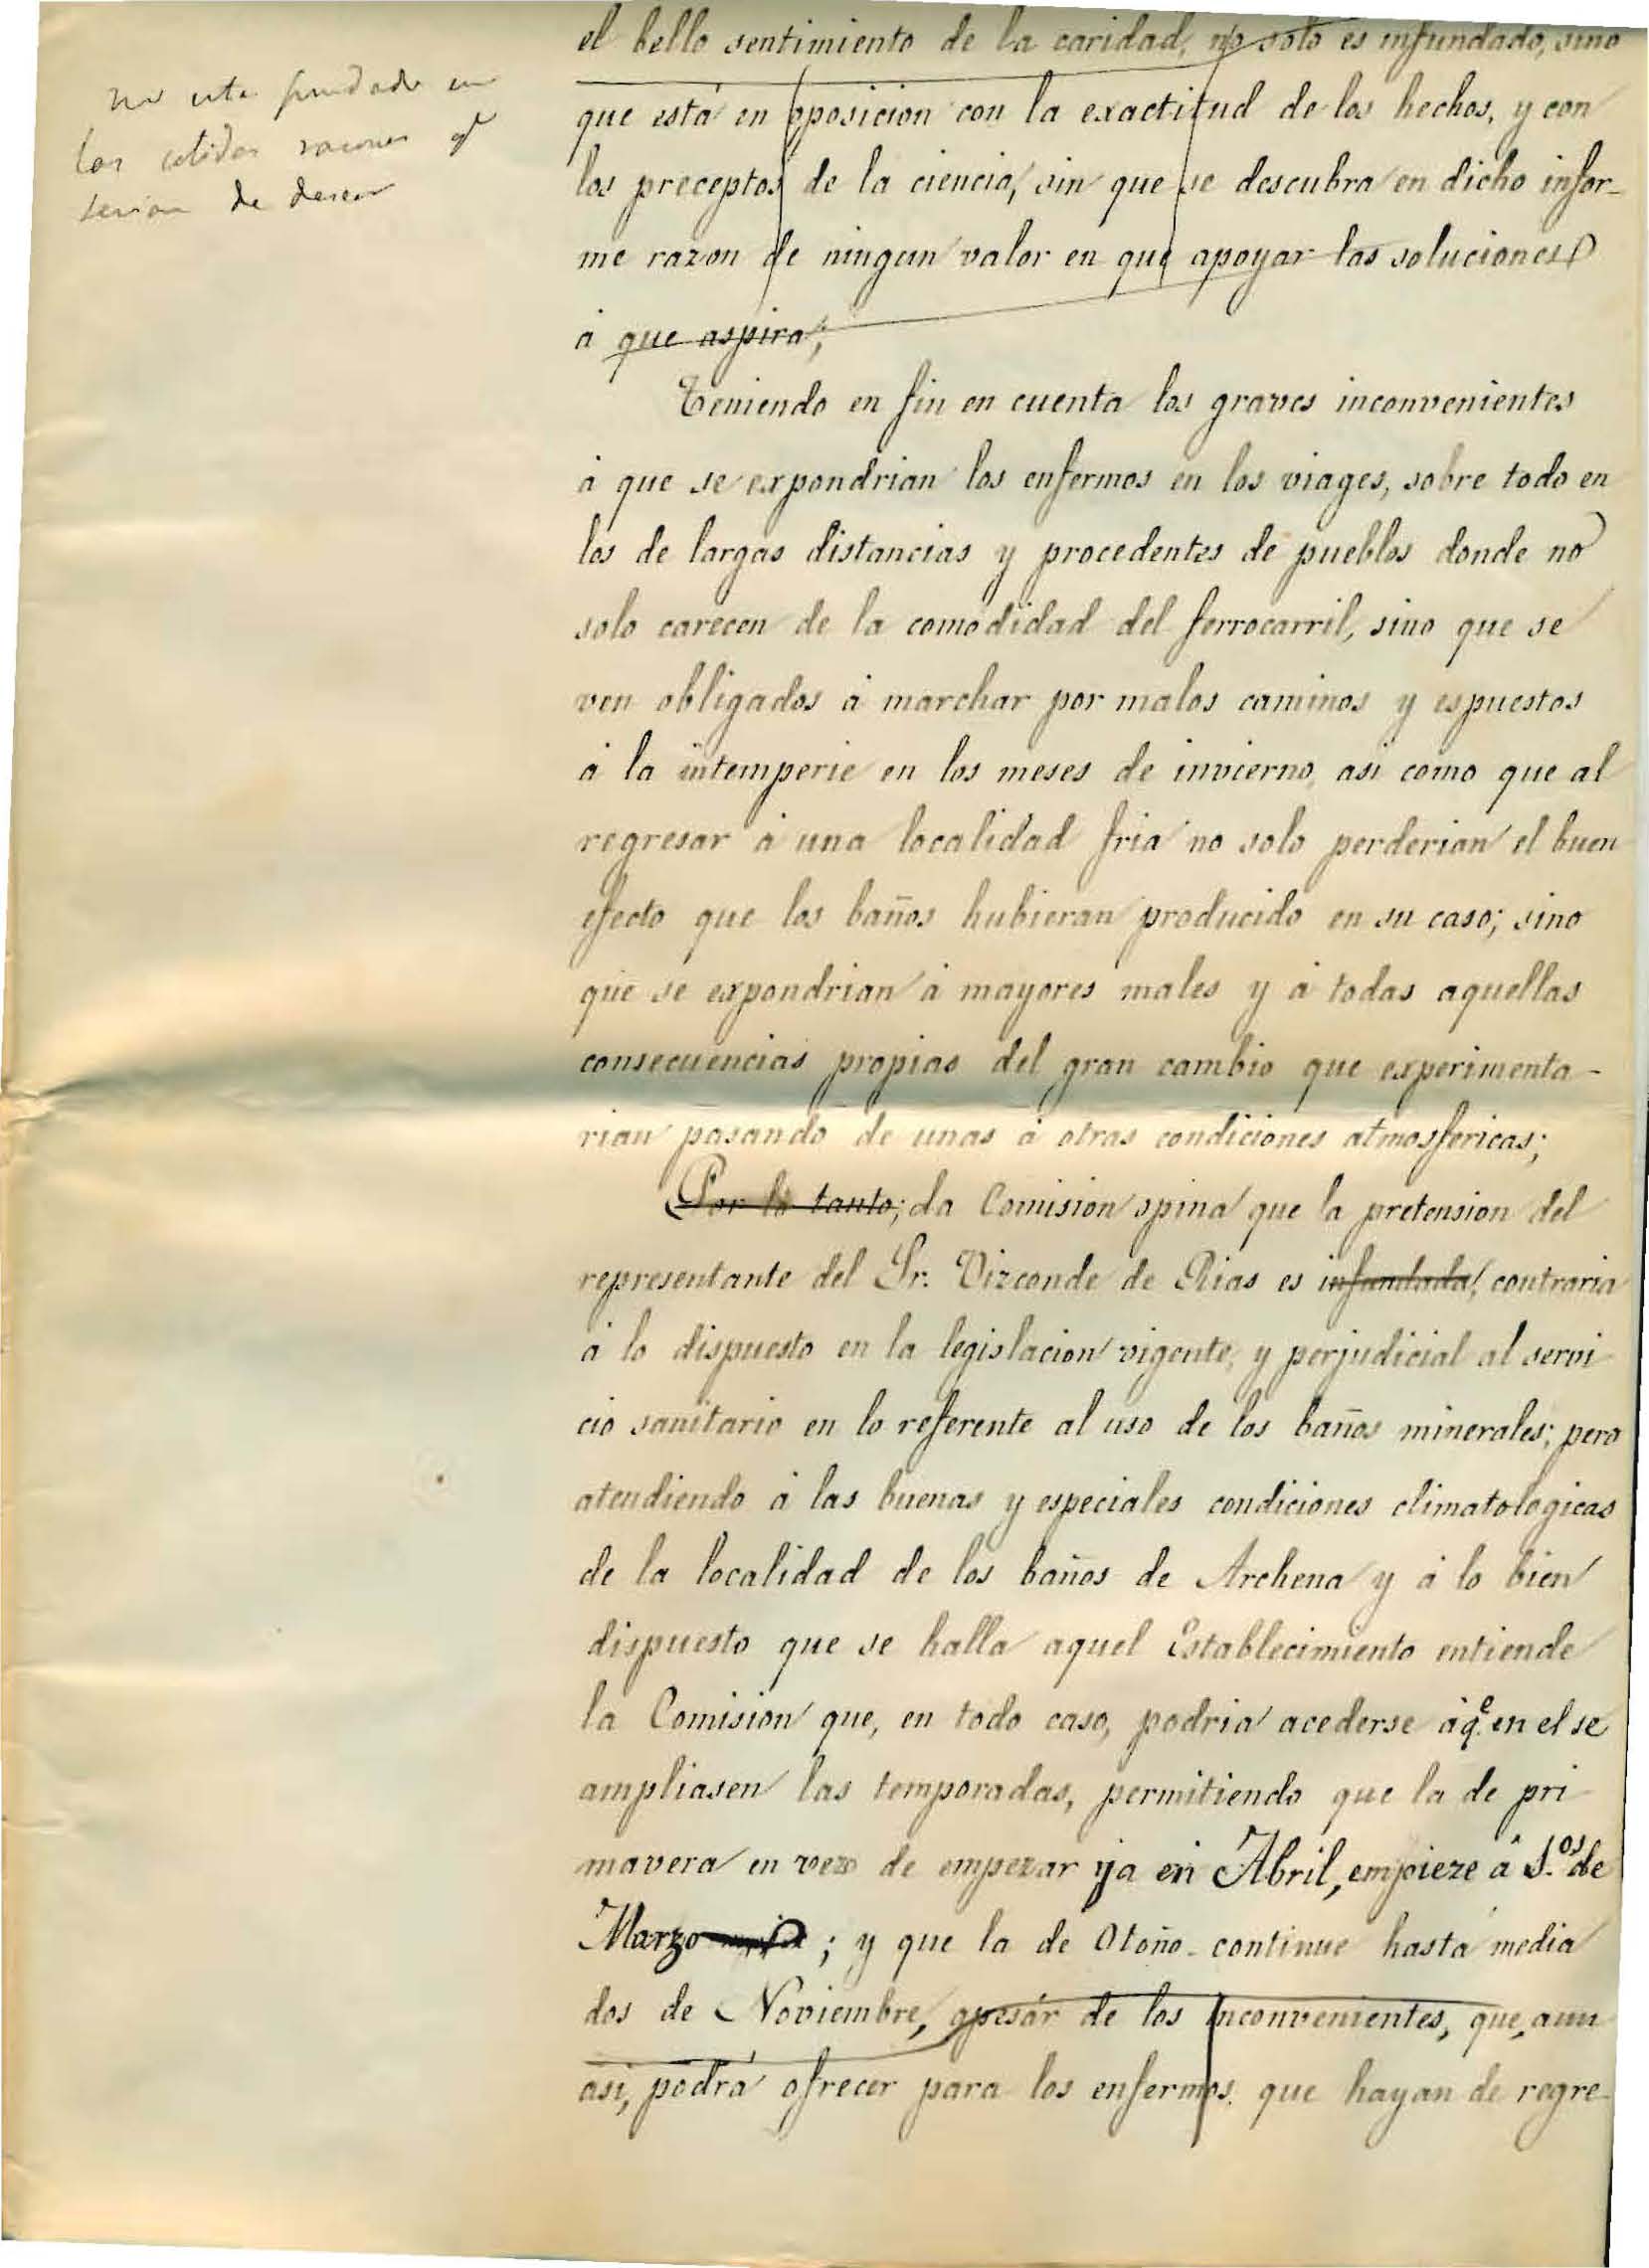 no esta fundado en
las solidas razones q.e
serian de desear
el bello sentimiento de la caridad, no solo es infundado, sino
que está en oposicion con la exactitud de los hechos, y con
los preceptos de la ciencia, sin que se descubra en dicho infor-
me razon de ningun valor en que apoyar las soluciones
á que aspira;
Teniendo en fin en cuenta los graves inconvenientes
á que se expondrian los enfermos en los viages, sobre todo en
los de largas distancias y procedentes de pueblos donde no
solo carecen de la comodidad del ferrocarril, sino que se
ven obligados á marchar por malos caminos y espuestos
á la intemperie en los meses de invierno, asi como que al
regresar á una localidad fria no solo perderian el buen
efecto que los baños hubieran producido en su caso; sino
que se expondrian á mayores males y á todas aquellas
consecuencias propias del gran cambio que experimenta-
rian pasando de unas á otras condiciones atmosfericas;
Por lo tanto; la Comision opina que la pretension del
representante del Sr. Vizconde de Rias es infundada, contraria
á lo dispuesto en la legislacion vigente, y perjudicial al servi
cio sanitario en lo referente al uso de los baños minerales; pero
atendiendo á las buenas y especiales condiciones climatologicas
de la localidad de los baños de Archena y á lo bien
dispuesto que se halla aquel Establecimiento entiende
la Comision que, en todo caso, podria acederse á q.e en el se
ampliasen las temporadas, permitiendo que la de pri
mavera en vez de empezar ya en Abril, empieze á 1.os de
Marzo ; y que la de Otoño continue hasta media
dos de Noviembre, apesár de los inconvenientes, que, aun
asi, podrá ofrecer para los enfermos que hayan de regre-